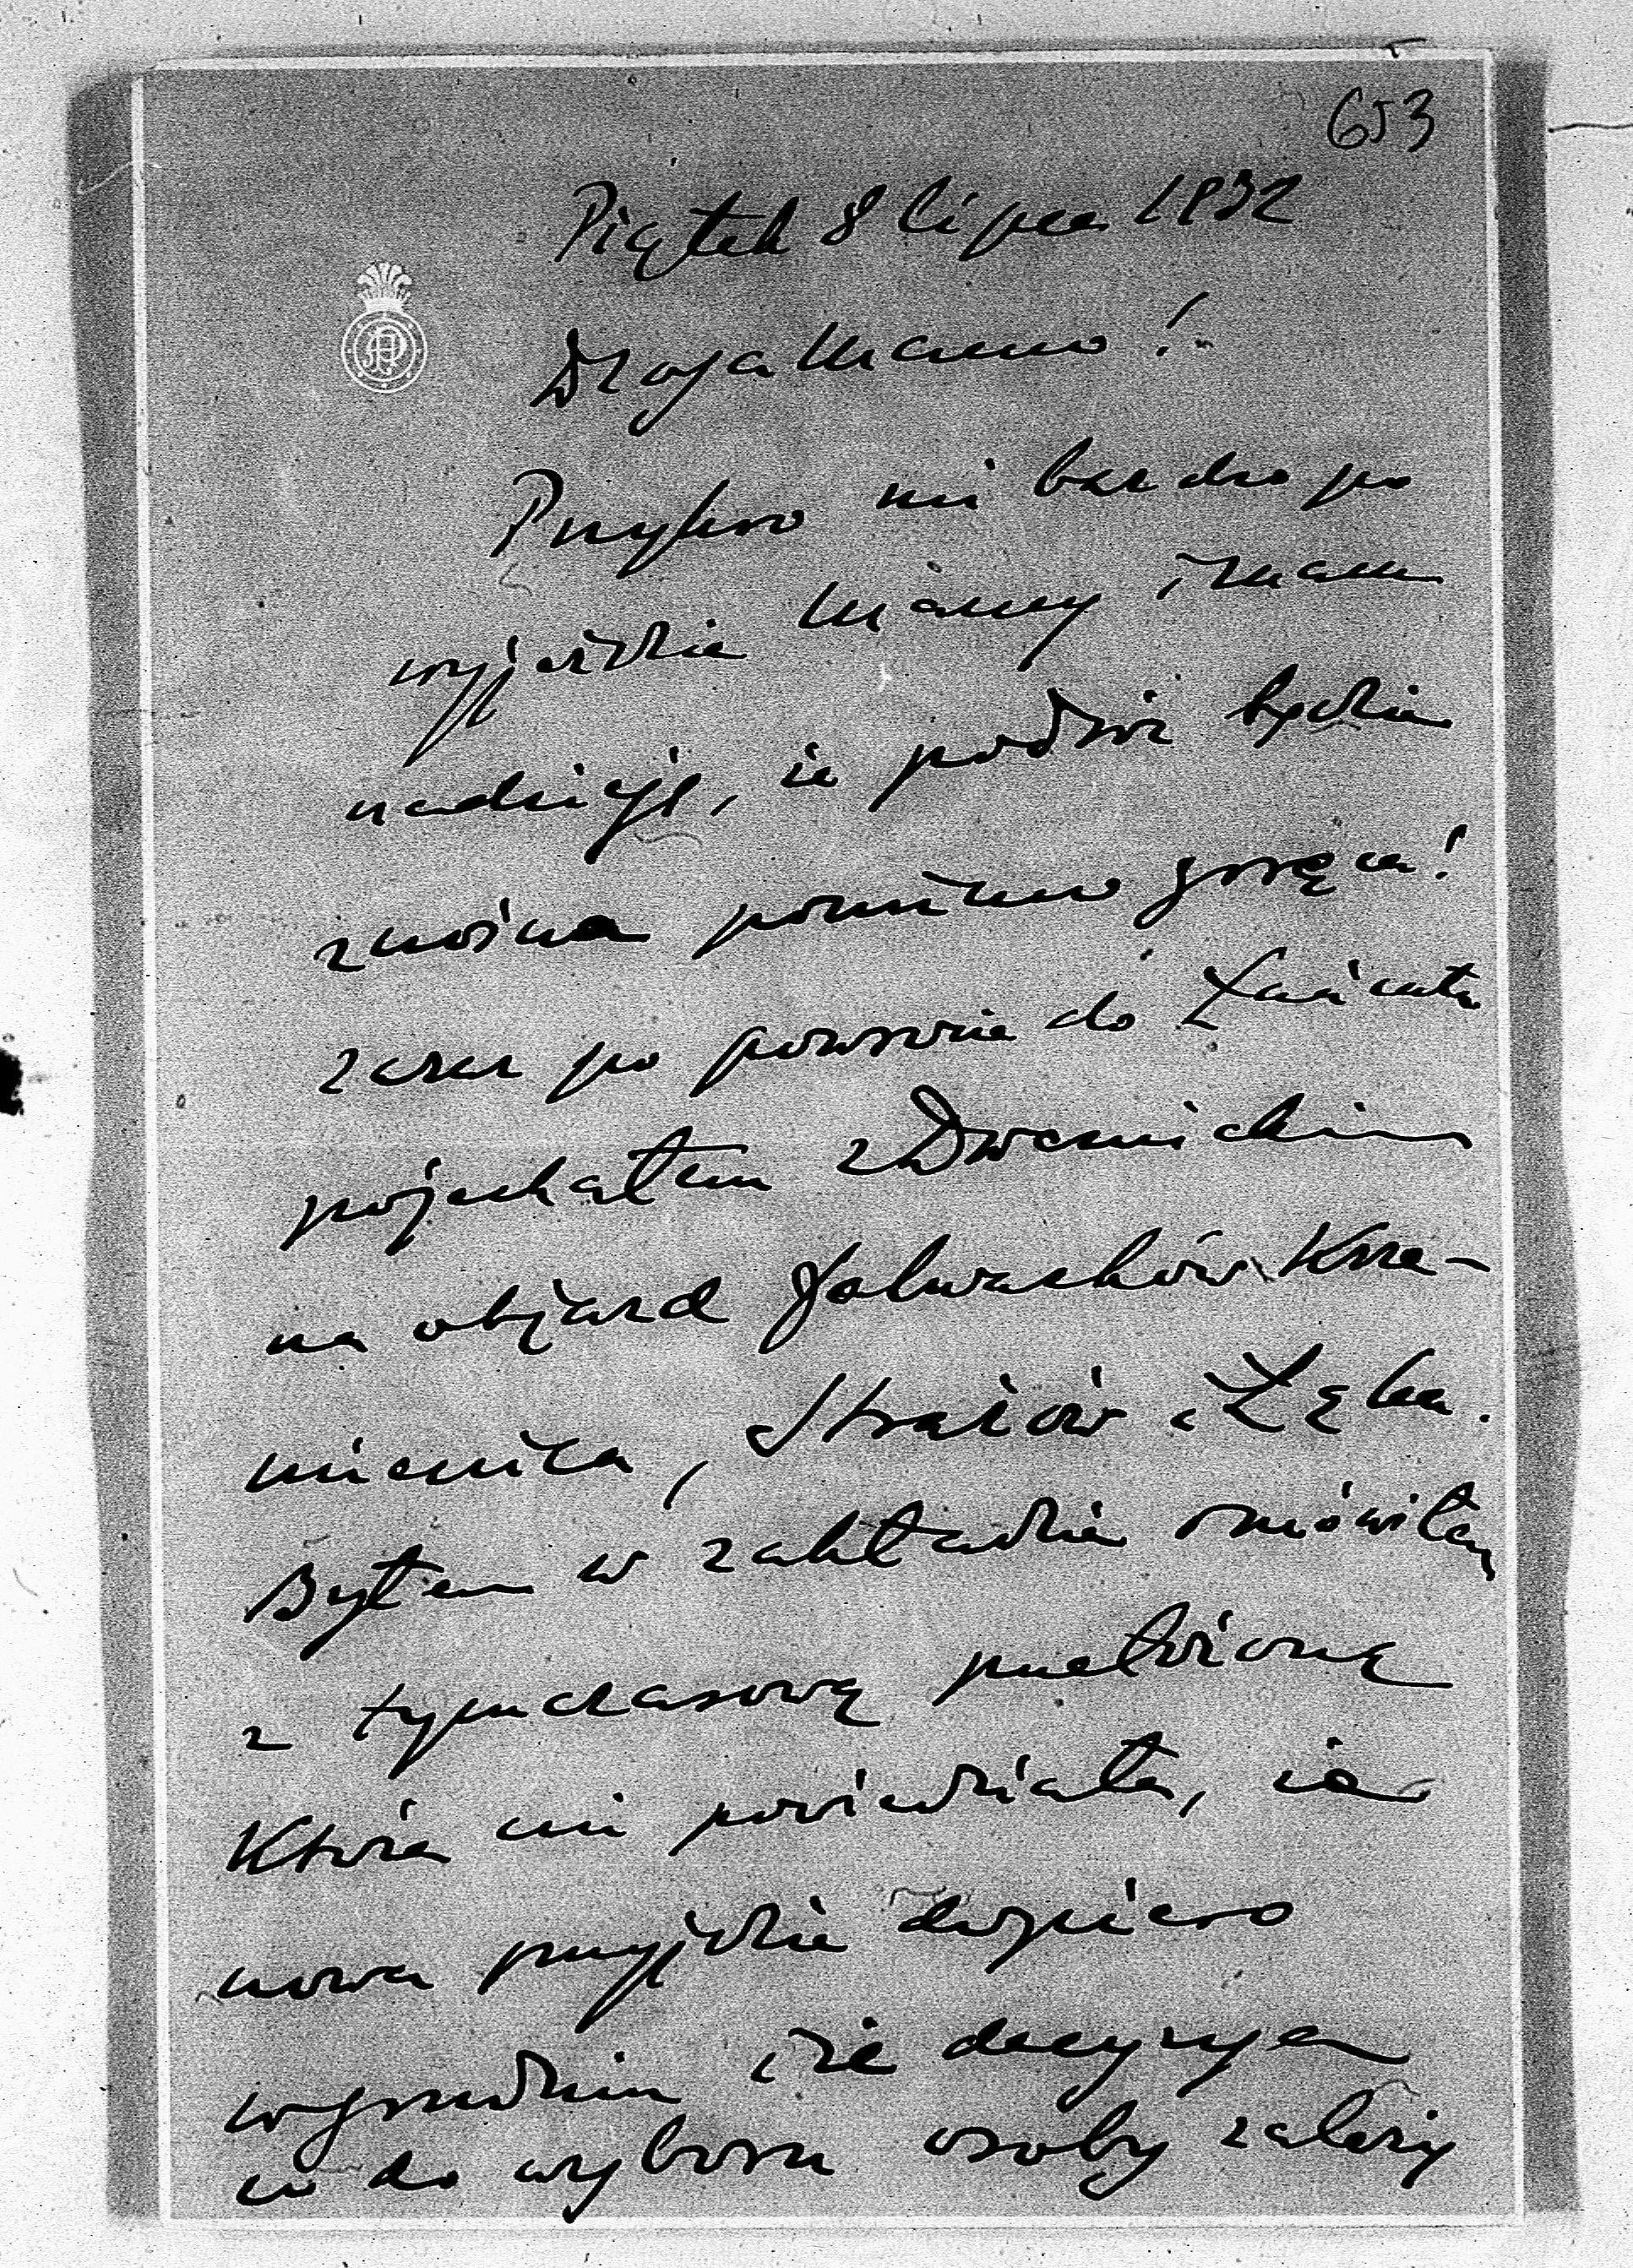 653
Piątek 8 lipca 1932
Droga Mamo!
Przykro mi bardzo po
wyjeździe Mamy i mam
nadzieję, że podróż będzie
znośna pomimo gorąca!
zaraz po powrocie do Łańcuta
pojechałem z Dwernickim
na objazd folwarków Krze-
mienica, Strażów i Łąka.
Byłem w zakładzie i mówiłem
z tymczasową przełożoną
Która mi powiedziała, że
nowa przyjdzie dopiero
w grudniu i że decyzya
co do wyboru osoby zależy